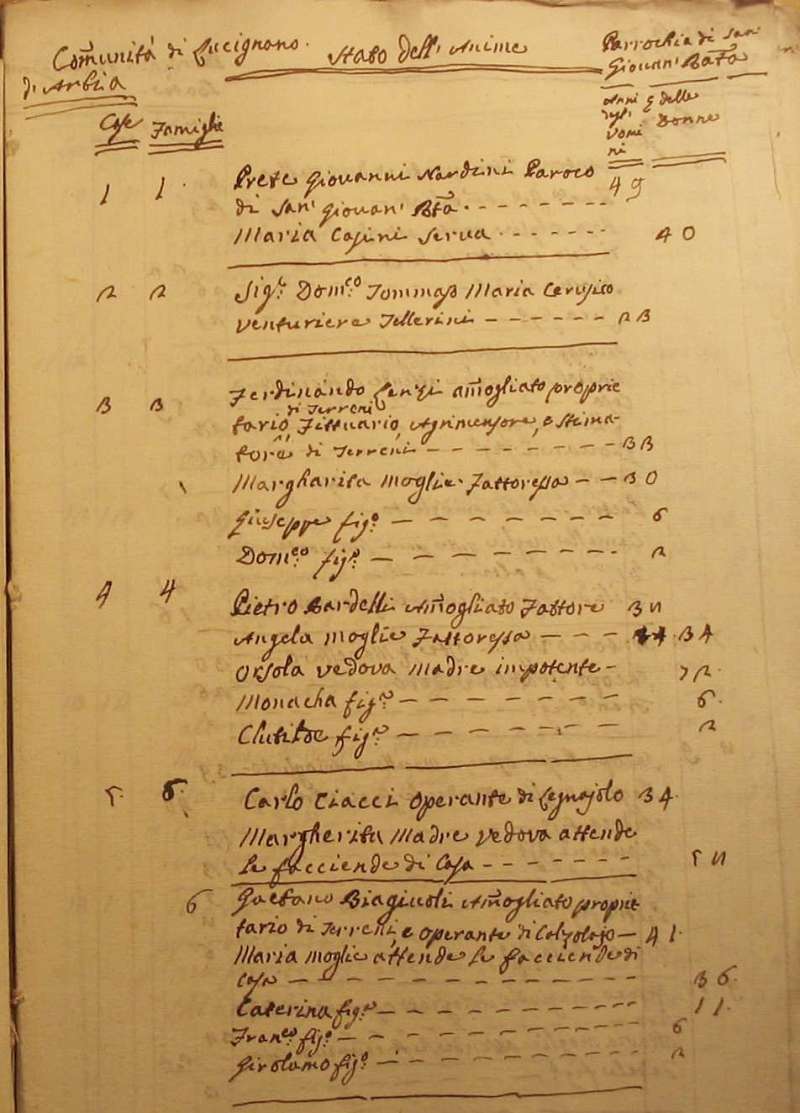 Comunità di Lucignano
d'Arbia
Stato dell'Anime
Parrochia di San
Giovan' Batta
Case Famiglie
Anni q delle
degl' Donne
Uomi
ni
1 1 Prete Giovanni Nardini Paroco 49
di San Giovan' Bta
Maria Casini Serva 40
2 2 Sig.r Dom.co Tommaso Maria Cerusico
Venturiere Tellerini 23
3 3 Ferdinando Lenzi Amogliato proprie
di Terreni
tario, Fittuario, Agrimensore, e Stima
tore di Terreni 33
Margharita Moglie Fattoressa 30
Giuseppe fig.o 6
Dom.co fig.o 2
4 4 Pietro Bardelli Amogliato Fattore 3
Angela Moglie Fattoressa 34
Orsola Vedova Madre impotente 72
Monacha fig.a 6
Clutilde fig.a 2
5 5 Carlo Ciacci Operante di Legnajolo 34
Margherita Madre Vedova attende
le facciende di Casa 5
6 Gaetano Biagiuoli Amogliato proprie
tario di Terreni, e operante di Calzolajo 41
Maria Moglie attende le facciende di
Casa 36
Caterina fig.a 11
Fran.co fig.o 6
Girolamo fig.o 2